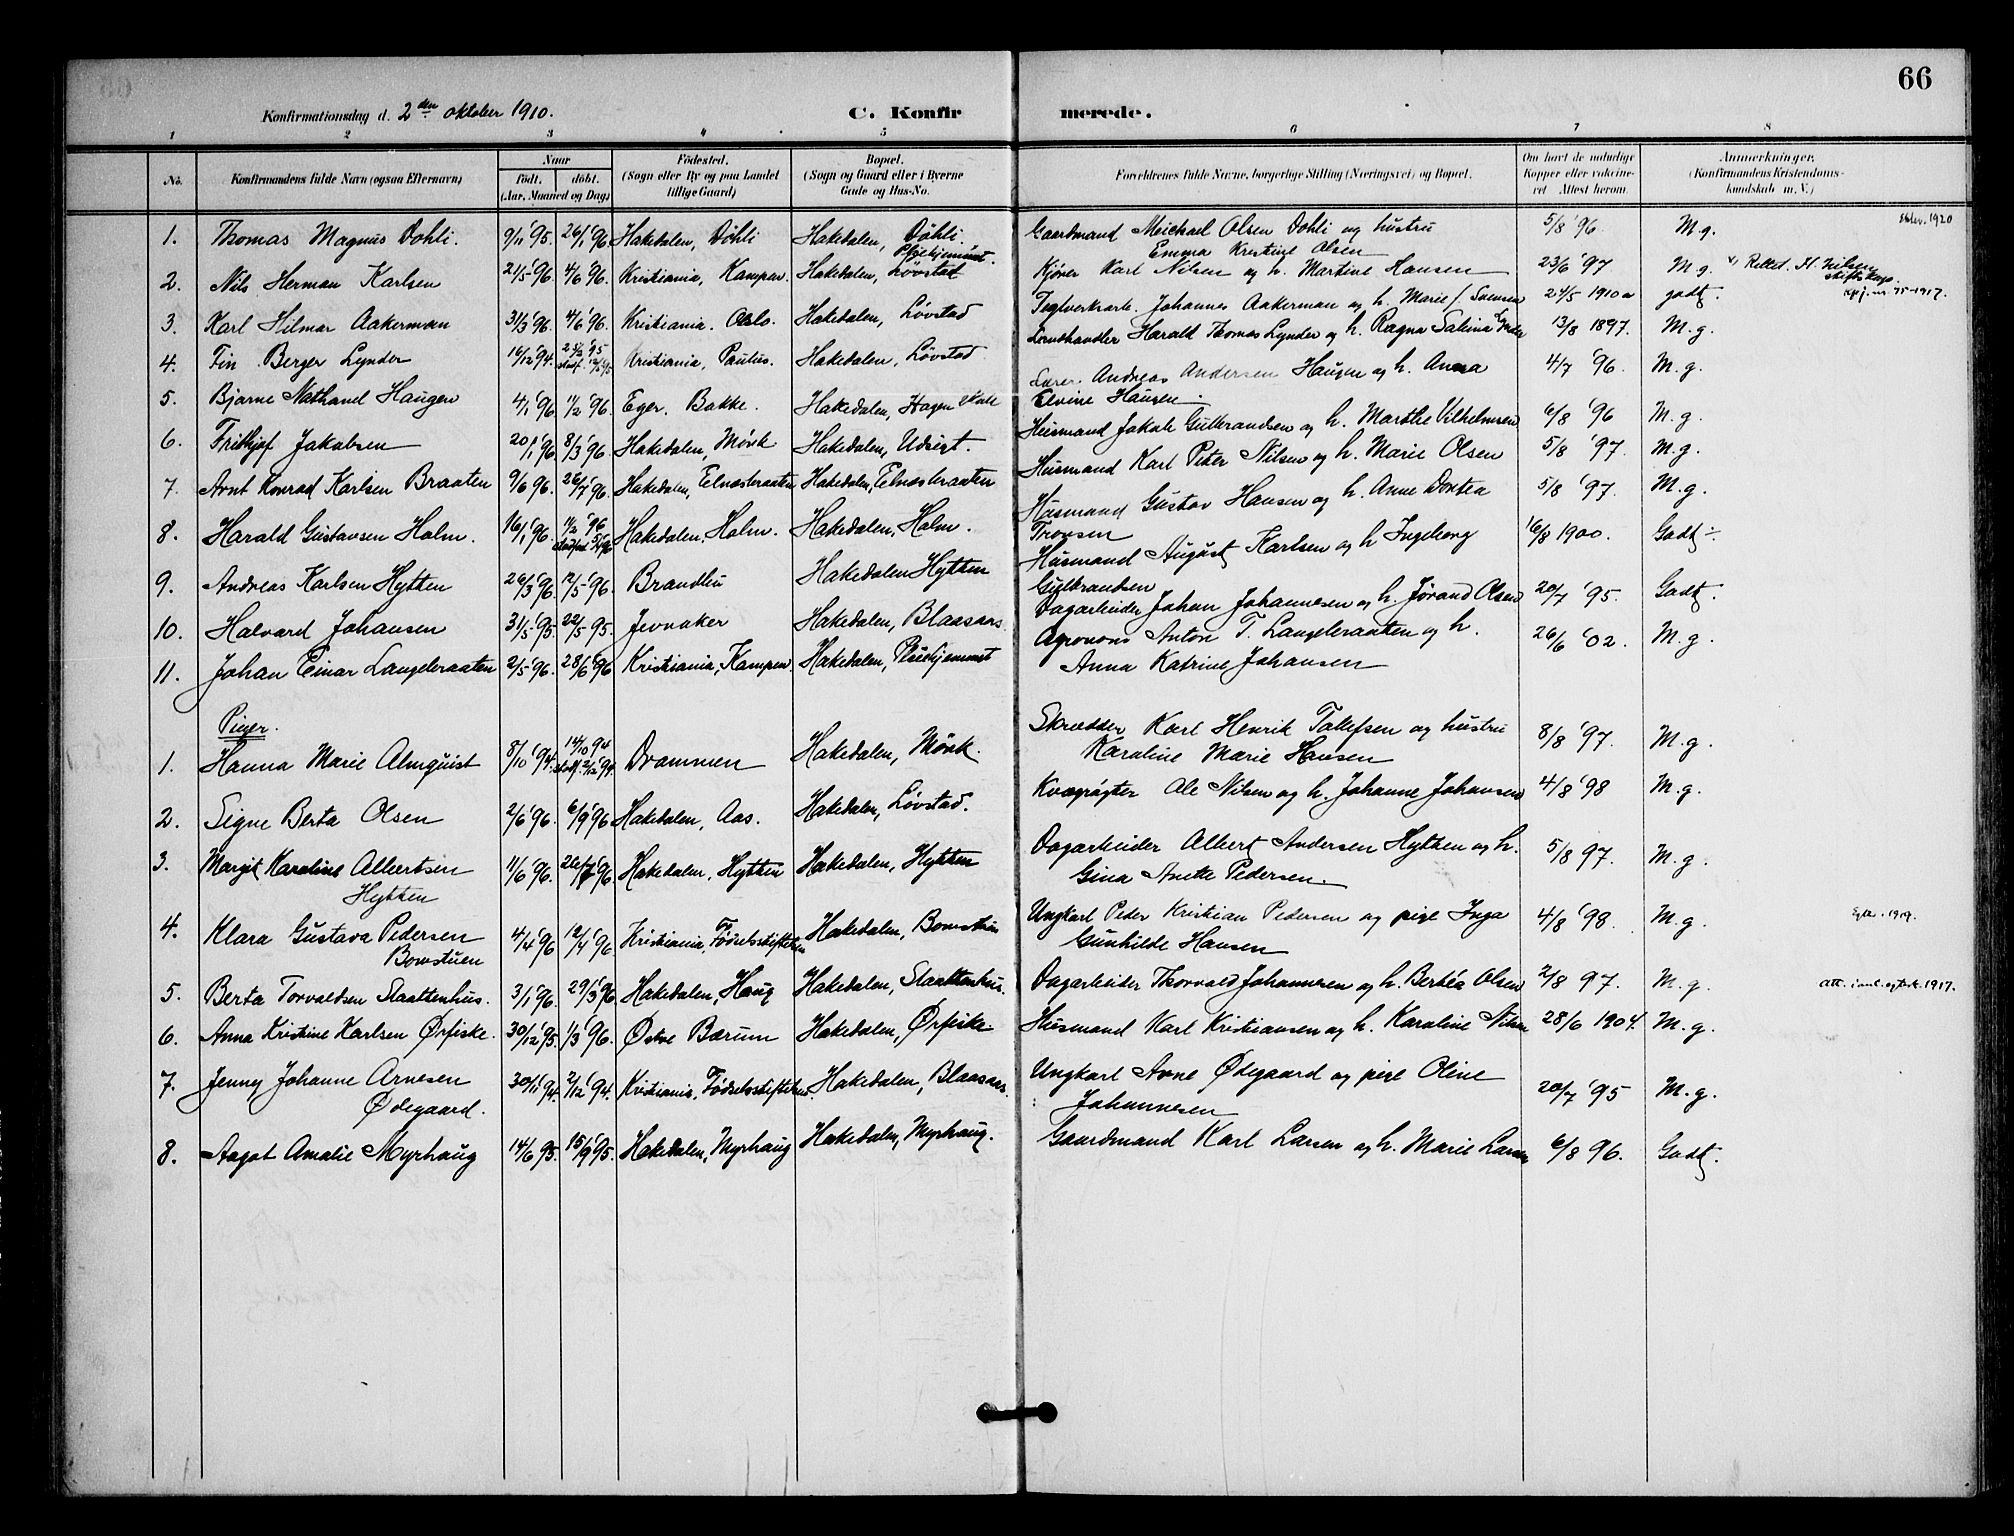 66
Konfirmationsdag d. 2den oktober 1910.
C. Konfirmerede.
1 2 3 4 5 6 7 8
No.
Konfirmandens fulde Navn (ogsaa Efternavn)
Naar
födt. döbt.
(Aar, Maaned og Dag)
Födested.
(Sogn eller By og paa Landet
tillige Gaard)
Bopæl.
(Sogn og Gaard eller i Byerne
Gade og Hus-No.
Forældrenes fulde Navne, borgerlige Stilling (Næringsvei) og Bopæl.
Om havt de naturlige
Kopper eller vakcine-
ret Attest herom.
Anmerkninger.
(Konfirmandens Kristendoms-
kundskab m. V.)
1. Thomas Magnus Dohli. 9/11 '95. 26/1 '96 Hakedalen, Döhli Hakedalen, Döhli. Gaardmand Michael Olsen Dohli og hustru 5/8 '96 M.g. 1920
Emma Kristine Olsen
2. Nils Herman Karlsen 21/5 '96. 4/6 '96. Kristiania, Kampen. Hakedalen, Løvstad Kjører Karl Nilsen og h. Martine Hansen 23/6 '97 M.g. Rettet. H. Nilsen
75-1917.
3. Karl Hilmar Aakerman 31/3 '96. 4/6 '96. Kristiania. Oslo. Hakedalen, Løvstad Teglverksarb. Johannes Aakerman og h. Marie f. Svensen 24/5 1910 godt.
4. Fin Berger Lynder 16/12 '94. Kristiania, Paulus. Hakedalen, Løvstad Harald Thomas Lynder og h. Ragna Sabina 13/8 1897. M.g.
5. Bjarne Nathanel Haugen 4/1 '96 1/2 '96. Eger. Bakke. Hakedalen, Hagen Skole Lærer Andreas Andersen Haugen og h. Anna 4/7 '96. M.g.
Elvine Haugen.
6. Frithjof Jakobsen 20/1 '96. 8/3 '96 Hakedalen, Mörk Hakedalen, Udsigt. Husmand Jakob Gulbrandsen og h. Marthe Vilhelmsen 6/8 '96 M.g.
7. Arnt Konrad Karlsen Braaten 9/6 96. 26/7 '96. Hakedalen, Elnesbraaten Hakedalen, Elnesbraaten Husmand Karl Peter Nilsen og h. Marie Olsen 5/8 '97. M.g.
8. Harald Gustavsen Holm. 16/1 '96. Hakedalen. Holm. Hakedalen, Holm. Husmand Gustav Hansen og h. Anne Dortea 5/8 '97. M.g.
Tronsen
9. Andreas Karlsen Hytten 26/3 '96. 12/5 '96. Brandbu Hakedalen Hytten Husmand August Karlsen og h Ingeborg 16/8 1900. Godt ÷.
Gulbrandsen
10. Halvard Johansen 31/1 '95. 22/5 95. Jevnaker Hakedalen, Blaasaas Dagarbeider Johan Johannesen og h. Jörand Olsen 20/7 '95. Godt.
11. Johan Einar Langebraaten 2/5 '96. 28/6 '96 Kristiania, Kampen. Hakedalen, Pleiehjemmet Agronom Anton T. Langebraaten og h. 26/6 '02. M.g.
Anna Katrine Johansen
Piger.
1. Hanna Marie Almquist 8/10 '94. 14/10 94 Drammen Hakedalen, Mörk. Skrædder Karl Henrik Tollefsen og hustru 8/8 '97. M.g.
Karoline Marie Hansen
2. Signe Berta Olsen 2/6 '96. 6/9 '96 Hakedalen, Aas. Hakedalen, Løvstad. Kvægrögter Ole Nilsen og h. Johanne Johansen 4/8 '98 M.g.
3. Margit Karoline Albertsen 11/6 '96. 26/7 '96. Hakedalen, Hytten Hakedalen, Hytten Dagarbeider Albert Andersen Hytten og h. 5/8 97. M.g.
Hytten Gina Anette Pedersen.
4. Klara Gustava Pedersen 4/4 '96 12/4 '96 Kristiania, Fødselsstiftelsen Hakedalen, Bomstuen Ungkarl Peder Kristian Pedersen og pige Inga 4/8 '98. M.g. 1919.
Bomstuen Gunhilde Hansen
5. Berta Torvaldsen Slaattenhus. 3/1 '96. 29/3 '96 Hakedalen, Haug Hakedalen, Slaattenhus. Dagarbeider Thorvald Johannesen og h. Bertéa Olsen 2/8 97. M.g. 1917.
6. Anna Kristine Karlsen Ørfiske. 30/12 '95. 1/3 '96. Østre Bærum Hakedalen, Ørfiske Husmand Karl Kristiansen og h. Karoline Nilsen 28/6 1904. M.g.
7. Jenny Johanne Arnesen 30/11 '94. 2/12 '94. Kristiania. Fødselsstiftelsen Hakedalen, Blaasaas. Ungkarl Arne Ødegaard og pige Oline 20/7 '95 M.g.
Ødegaard. Johannesen
8. Aagot Amalie Myrhaug 14/6 95. 15/9 '95. Hakedalen, Myrhaug Hakedalen, Myrhaug. Gaardmand Karl Larsen og h. Marie Larsen 6/8 96. Godt.